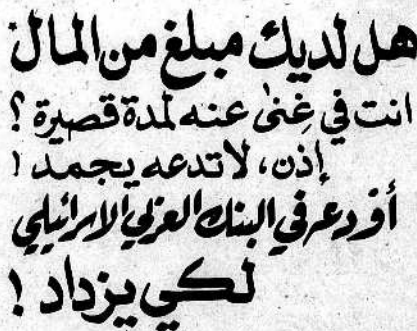 هل لديك مبلغ من المال
انت في غنىً عنه لمدة قصيرة ؟
إذن، لا تدعه يجمد !
أودعه في البنك العربي الاسرائيلي
لكي يزداد !